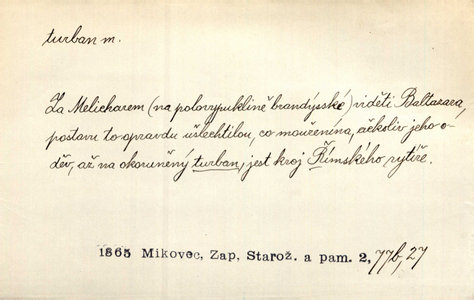 turban m.
Za Melicharem (na polovypuklině brandýsské) viděti Baltazara,
postavu to opravdu ušlechtilou, co mouřenína, ačkoliv jeho o-
děv, až na okoruněný turban, jest kroj Římského rytíře.
1865 Mikovec, Zap, Starož. a pam. 2, 77b, 27